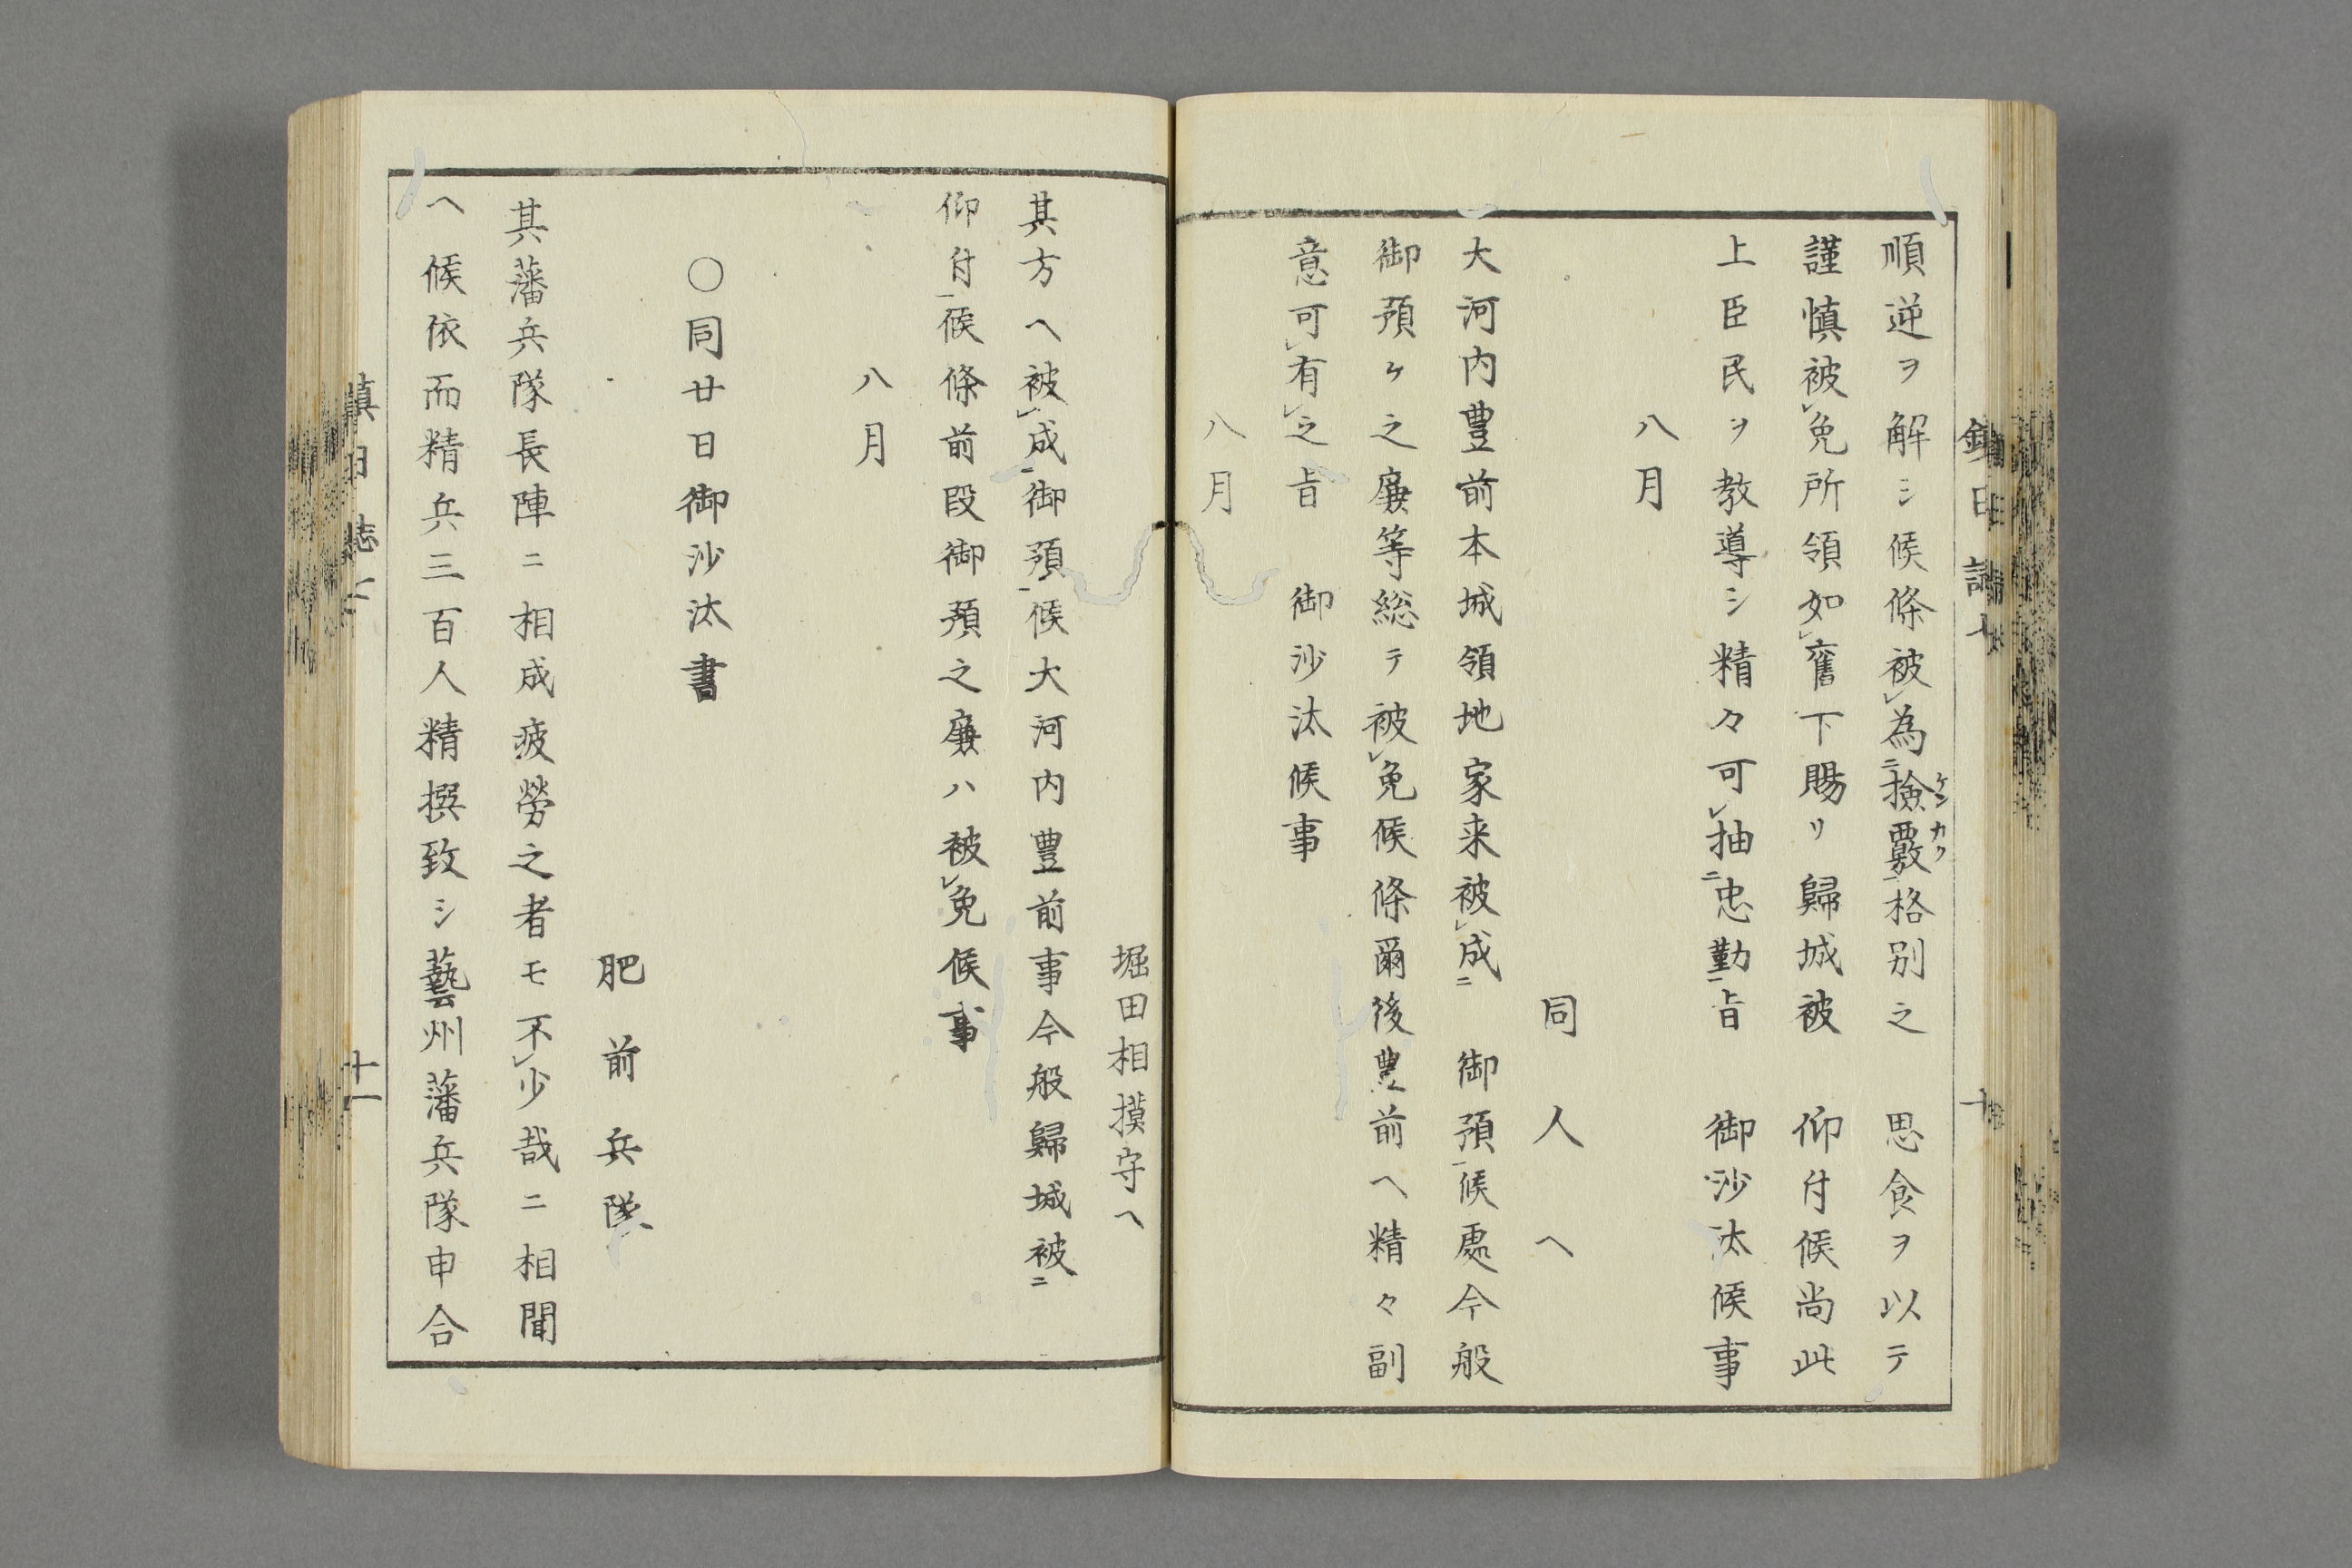 順逆ヲ解シ候條被㆑為㆓撿覈㆒格別之　思食ヲ以テ
ケン カク
謹慎被㆑免所領如㆑舊下賜リ歸城被　仰付候尚此
上臣民ヲ教導シ精々可㆑抽㆓忠勤㆒旨　御沙汰候事
八月
同人ヘ
大河内豊前本城領地家来被㆑成㆓　御預㆒候處今般
御預ケ之廉等総テ被㆑免候條爾後豊前ヘ精々副
意可㆑有㆑之旨　御沙汰候事
八月
堀田相摸守ヘ
其方ヘ被㆑成㆓御預㆒候大河内豊前事今般歸城被㆓
仰付㆒候條前段御預之廉ハ被㆑免候事
八月
○同廿日御沙汰書
肥前兵隊
其藩兵隊長陣ニ相成疲勞之者モ不㆑少哉ニ相聞
ヘ候依而精兵三百人精撰致シ藝州藩兵隊申合
十一